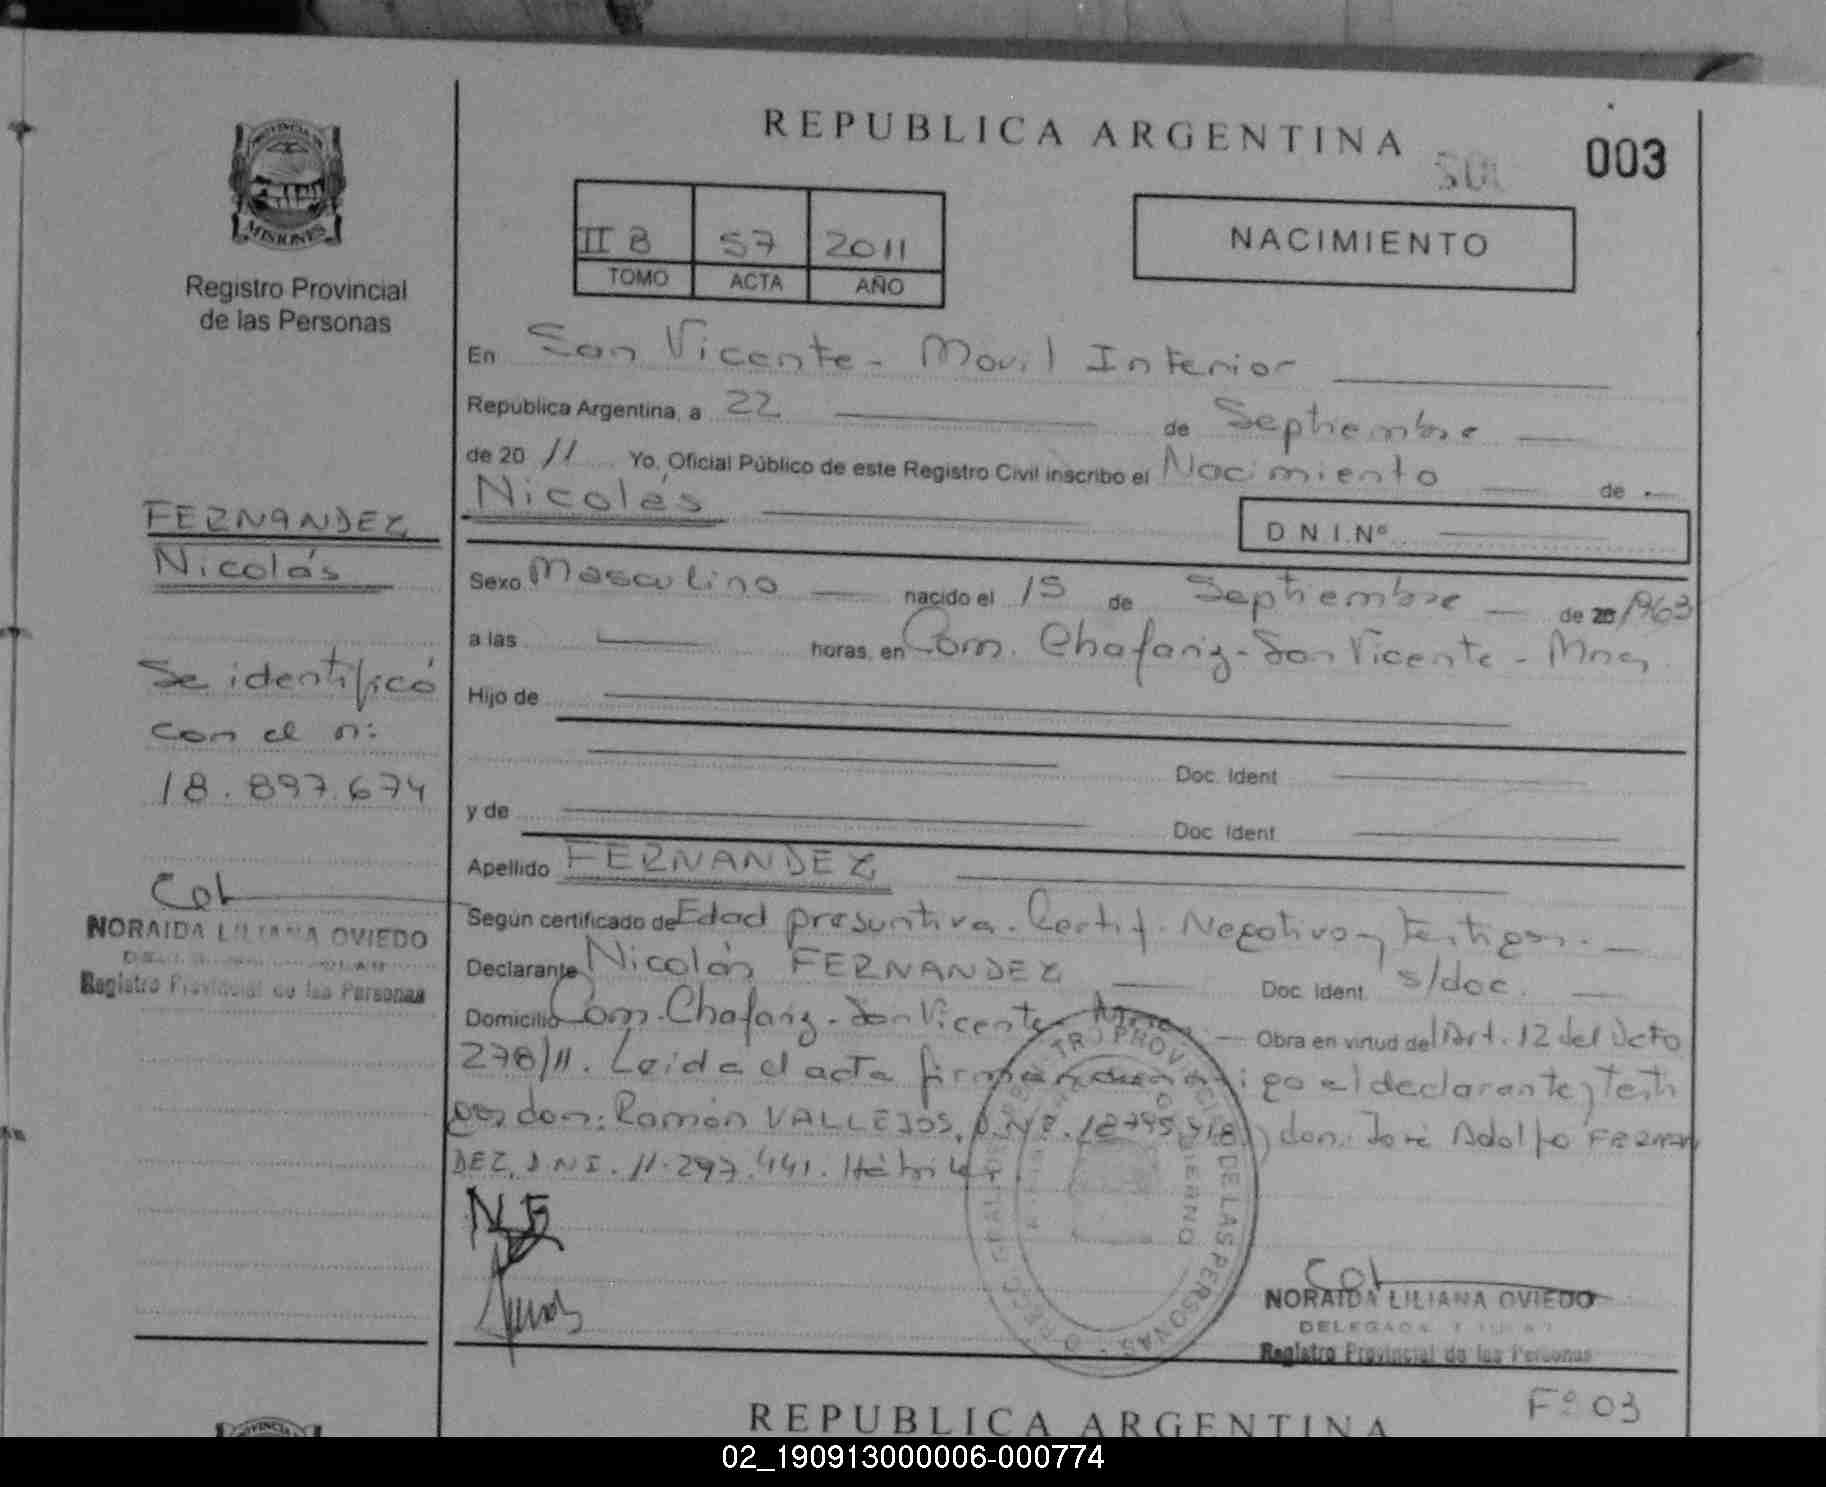 REPUBLICA ARGENTINA
003
PROVINCIA DE
MISIONES
Registro Provincial
de las Personas
II B 57 2011
TOMO ACTA AÑO
NACIMIENTO
En San Vicente - Movil Interior
Republica Argentina, a 22 de Septiembre
de 20 11 Yo, Oficial Público de este Registro Civil inscribo el Nacimiento de
Nicolás
D.N.I.Nº
FERNANDEZ
Nicolás
Se identificó
con el n:
18.897.674
NORAIDA LILIANA OVIEDO
Registro Provincial de las Personas
Sexo Masculino nacido el 15 de Septiembre de 20 1963
a las horas, en Com. Chafariz - San Vicente - Mnes
Hijo de
Doc. Ident
y de
Doc. Ident
Apellido FERNANDEZ
Según certificado de Edad presuntiva. Certif. Negativo y testigos.
Declarante Nicolás FERNANDEZ Doc. Ident. s/doc.
Domicilio Com. Chafariz - San Vicente - Mnes Obra en virtud del Art. 12 del Dcto
278/11. Leida el acta firman conmigo el declarante y testi
gos don: Ramón VALLEJOS, D.N.I. 18.795.418 y don: José Adolfo FERNAN
DEZ, D.N.I. 11.297.441.
N F
NORAIDA LILIANA OVIEDO
DELEGADA
Registro Provincial de las Personas
Fº 03
REPUBLICA ARGENTINA
02_190913000006-000774